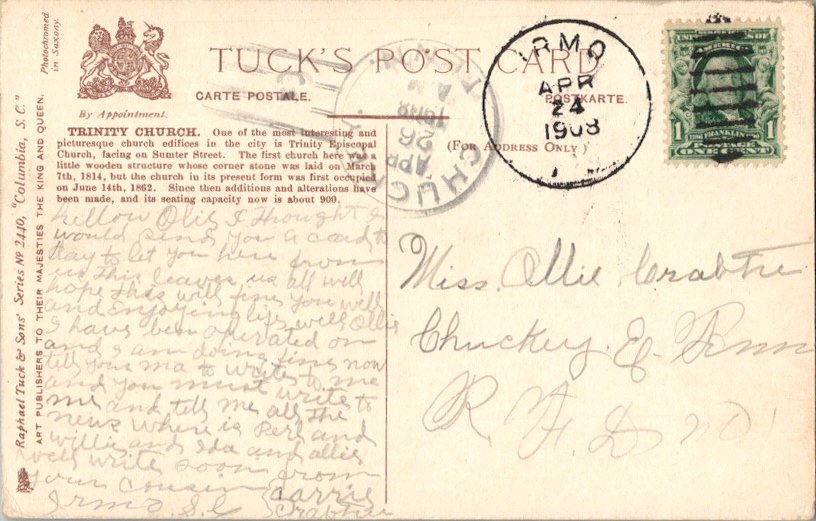 Photochromed
in Saxony.
By Appointment.
TUCK'S POST CARD
CARTE POSTALE.
POSTKARTE.
(FOR ADDRESS ONLY)
IRMO
APR
24
1908
CHUCKEY
APR
26
AM
1908
UNITED STATES OF
AMERICA
1 FRANKLIN 1
POSTAGE
ONE CENT
Raphael Tuck & Sons' Series Nº 2440, "Columbia, S. C."
ART PUBLISHERS TO THEIR MAJESTIES THE KING AND QUEEN.
TRINITY CHURCH. One of the most interesting and
picturesque church edifices in the city is Trinity Episcopal
Church, facing on Sumter Street. The first church here was a
little wooden structure whose corner stone was laid on March
7th, 1814, but the church in its present form was first occupied
on June 14th, 1862. Since then additions and alterations have
been made, and its seating capacity now is about 900.
hellow Olie I thought I
would send you a card to
day to let you here from
us this leaves us all well
hope this will fine you well
and enjoying life well Ollie
I have ben operated on
and I am doing fine now
tell your ma to write to me
and you must write to
me and tell me all the
news where is Perl and
willie and Ida and allie
well write soon from
your cousin Carrie
Irmo S.C Crabtree
Miss. Ollie Crabtre
Chuckey. E. Tenn
R. F. D no 1